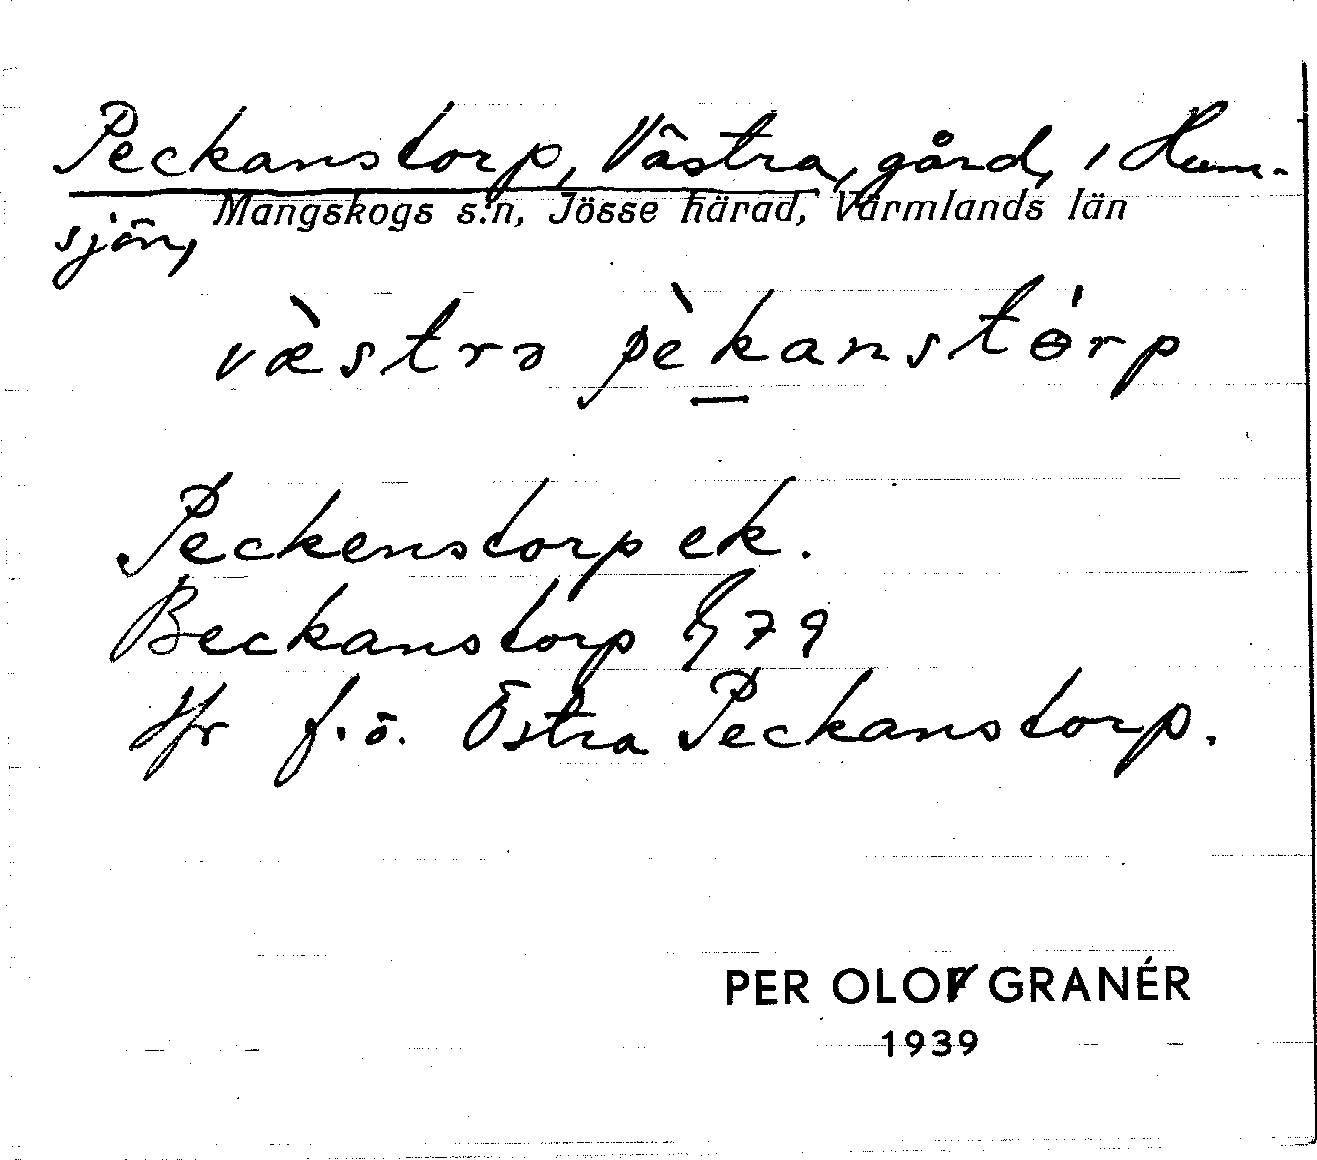 Peckanstorp, Västra, gård, i Hum-
Mangskogs s:n, Jösse härad, Värmlands län
sjön,
væ̀strə pèk̲anstɵ́rp
Peckenstorp ek.
Beckanstorp 79
Jfr f.ö. Östra Peckanstorp.
PER OLOF GRANÉR
1939